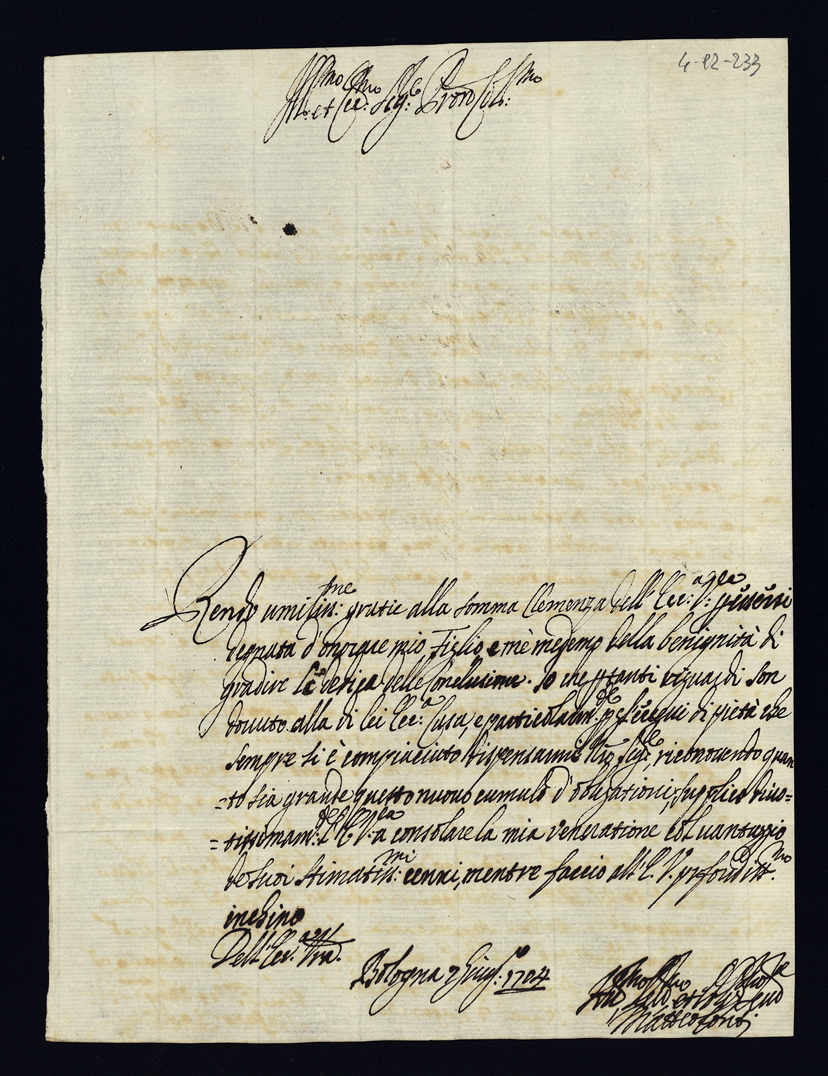 4-12-233
Ill.mo et Ecc.mo Sig.re Pron Col.mo
Rendo umiliss.me gratie alla somma Clemenza dell' Ecc.a V.
degnata d'honorare mio Figlio, e mè medemo della benignità di
gradire la dedica delle Conclusioni. Io che tanti riguardi son
tenuto alla di lei Ecc.a Casa, e particolarm.te di pietà che
sempre si è compiaciuto dispensarmi riconoscendo quan
=to sia grande questo nuovo cumulo d'obligationi, supplico divo=
=tissimam.te l'E. V.a à consolare la mia veneratione col vantaggio
de suoi stimatiss.mi cenni, mentre faccio all' E. V. profondiss.mo
inchino
Dell' Ecc.a Vra.
Bologna 7 Giug.o 1704
Matteo Conti